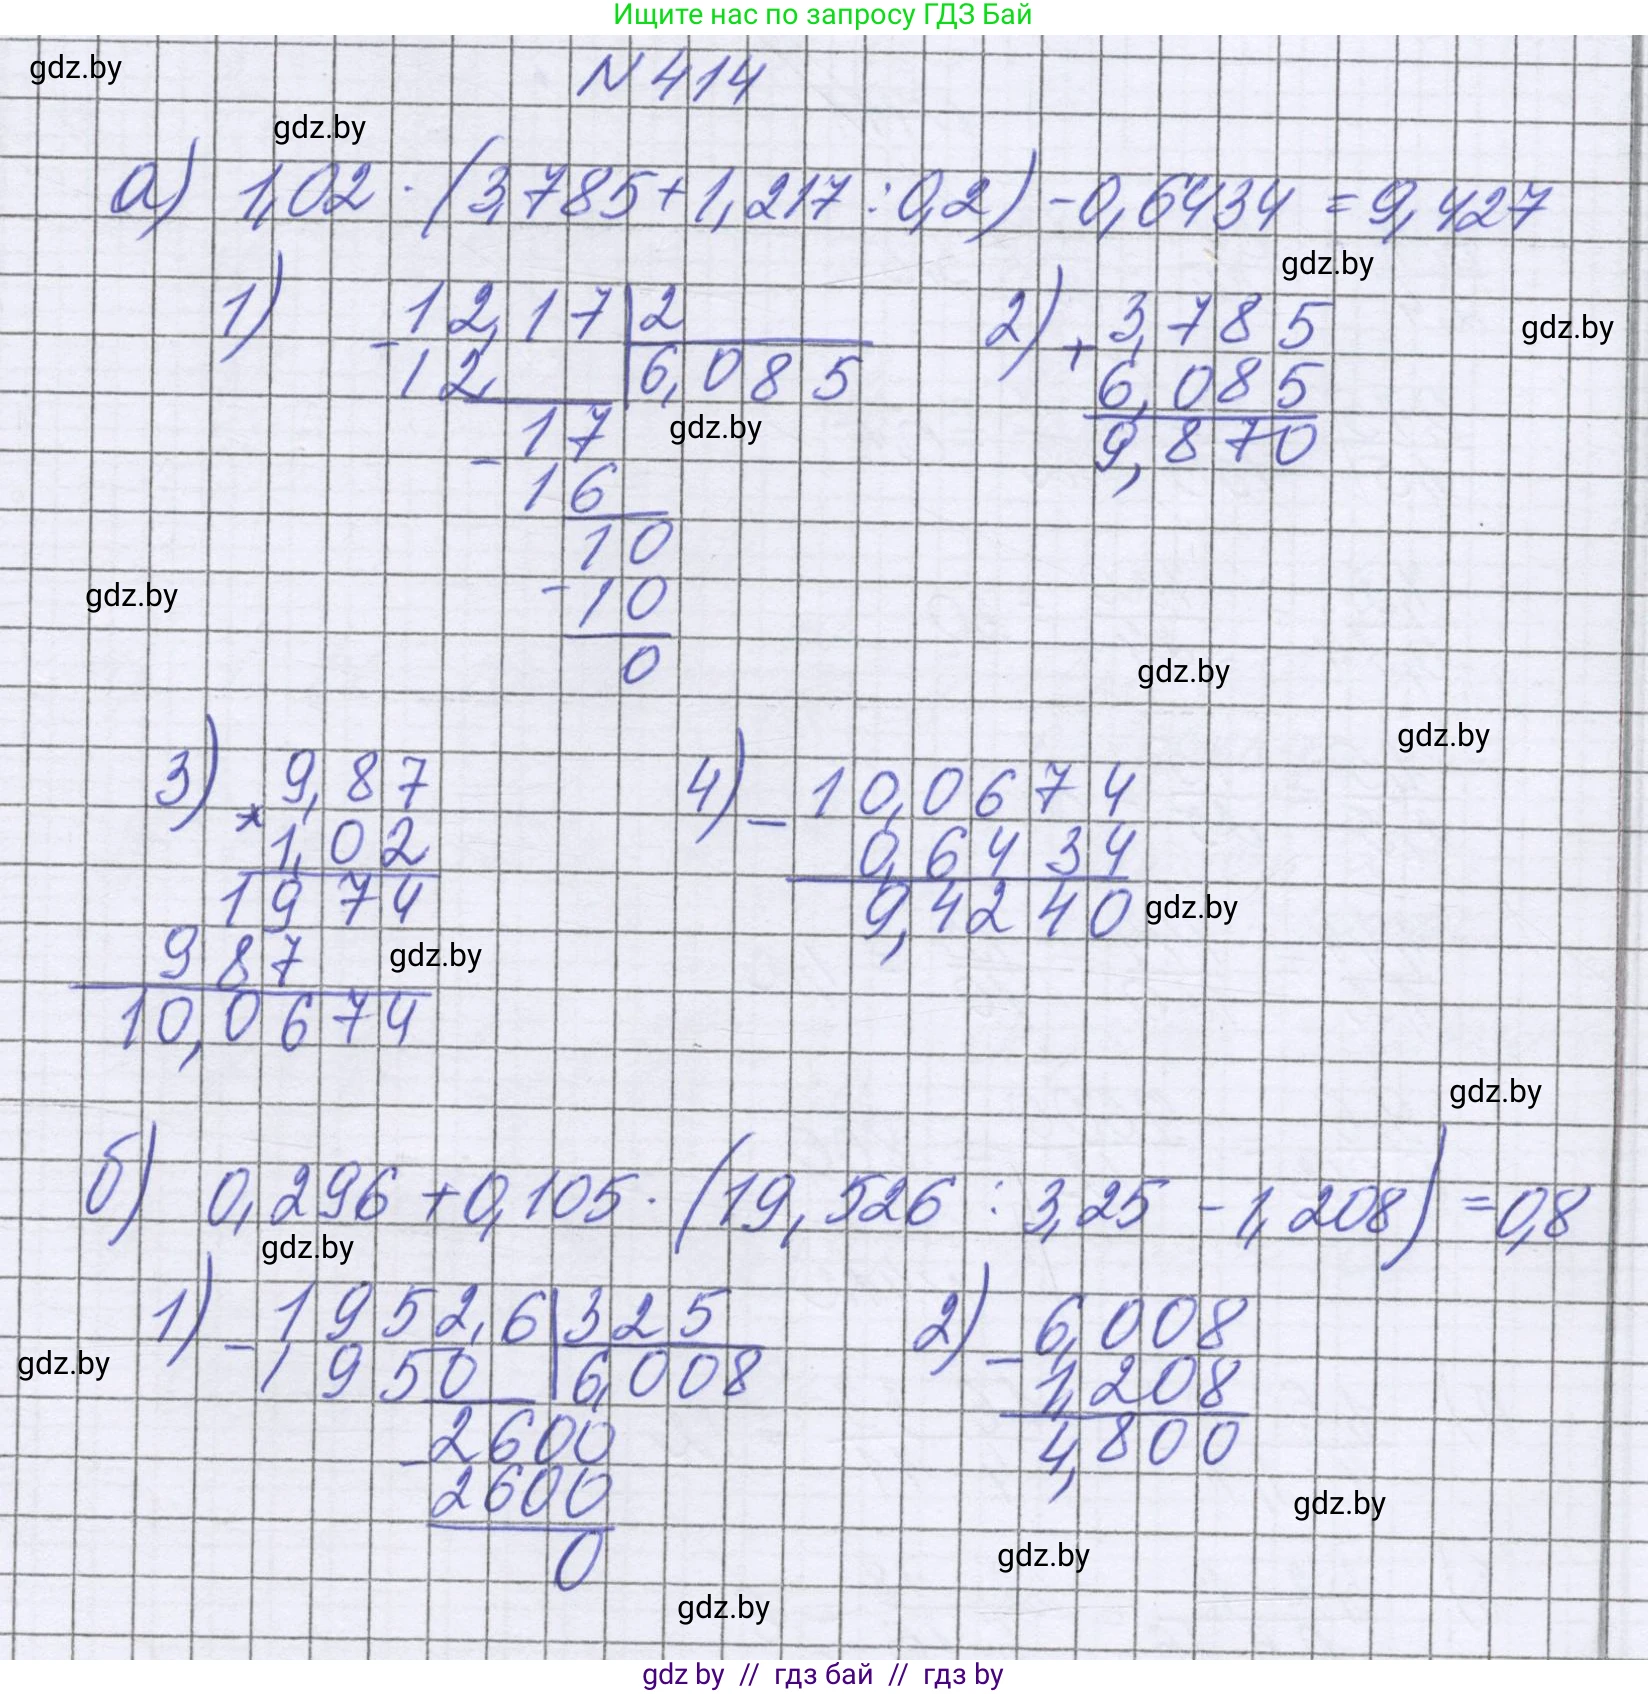 Ищите нас по запросу ГДЗ Бай
gdz.by
N 414
gdz.by
а) 1,02 · (3,785 + 1,217 : 0,2) - 0,6434 = 9,427
gdz.by
1) - 12,17 | 2
12, | 6,085
- 17
16
10
- 10
0
gdz.by
2) + 3,785
6,085
9,870
gdz.by
gdz.by
gdz.by
gdz.by
3) * 9,87
1,02
1974
987
10,0674
gdz.by
4) - 10,0674
0,6434
9,4240
gdz.by
gdz.by
б) 0,296 + 0,105 · (19,526 : 3,25 - 1,208) = 0,8
gdz.by
1) - 1952,6 | 325
1950 | 6,008
- 2600
2600
0
gdz.by
2) - 6,008
1,208
4,800
gdz.by
gdz.by
gdz.by
gdz by // гдз бай // гдз by